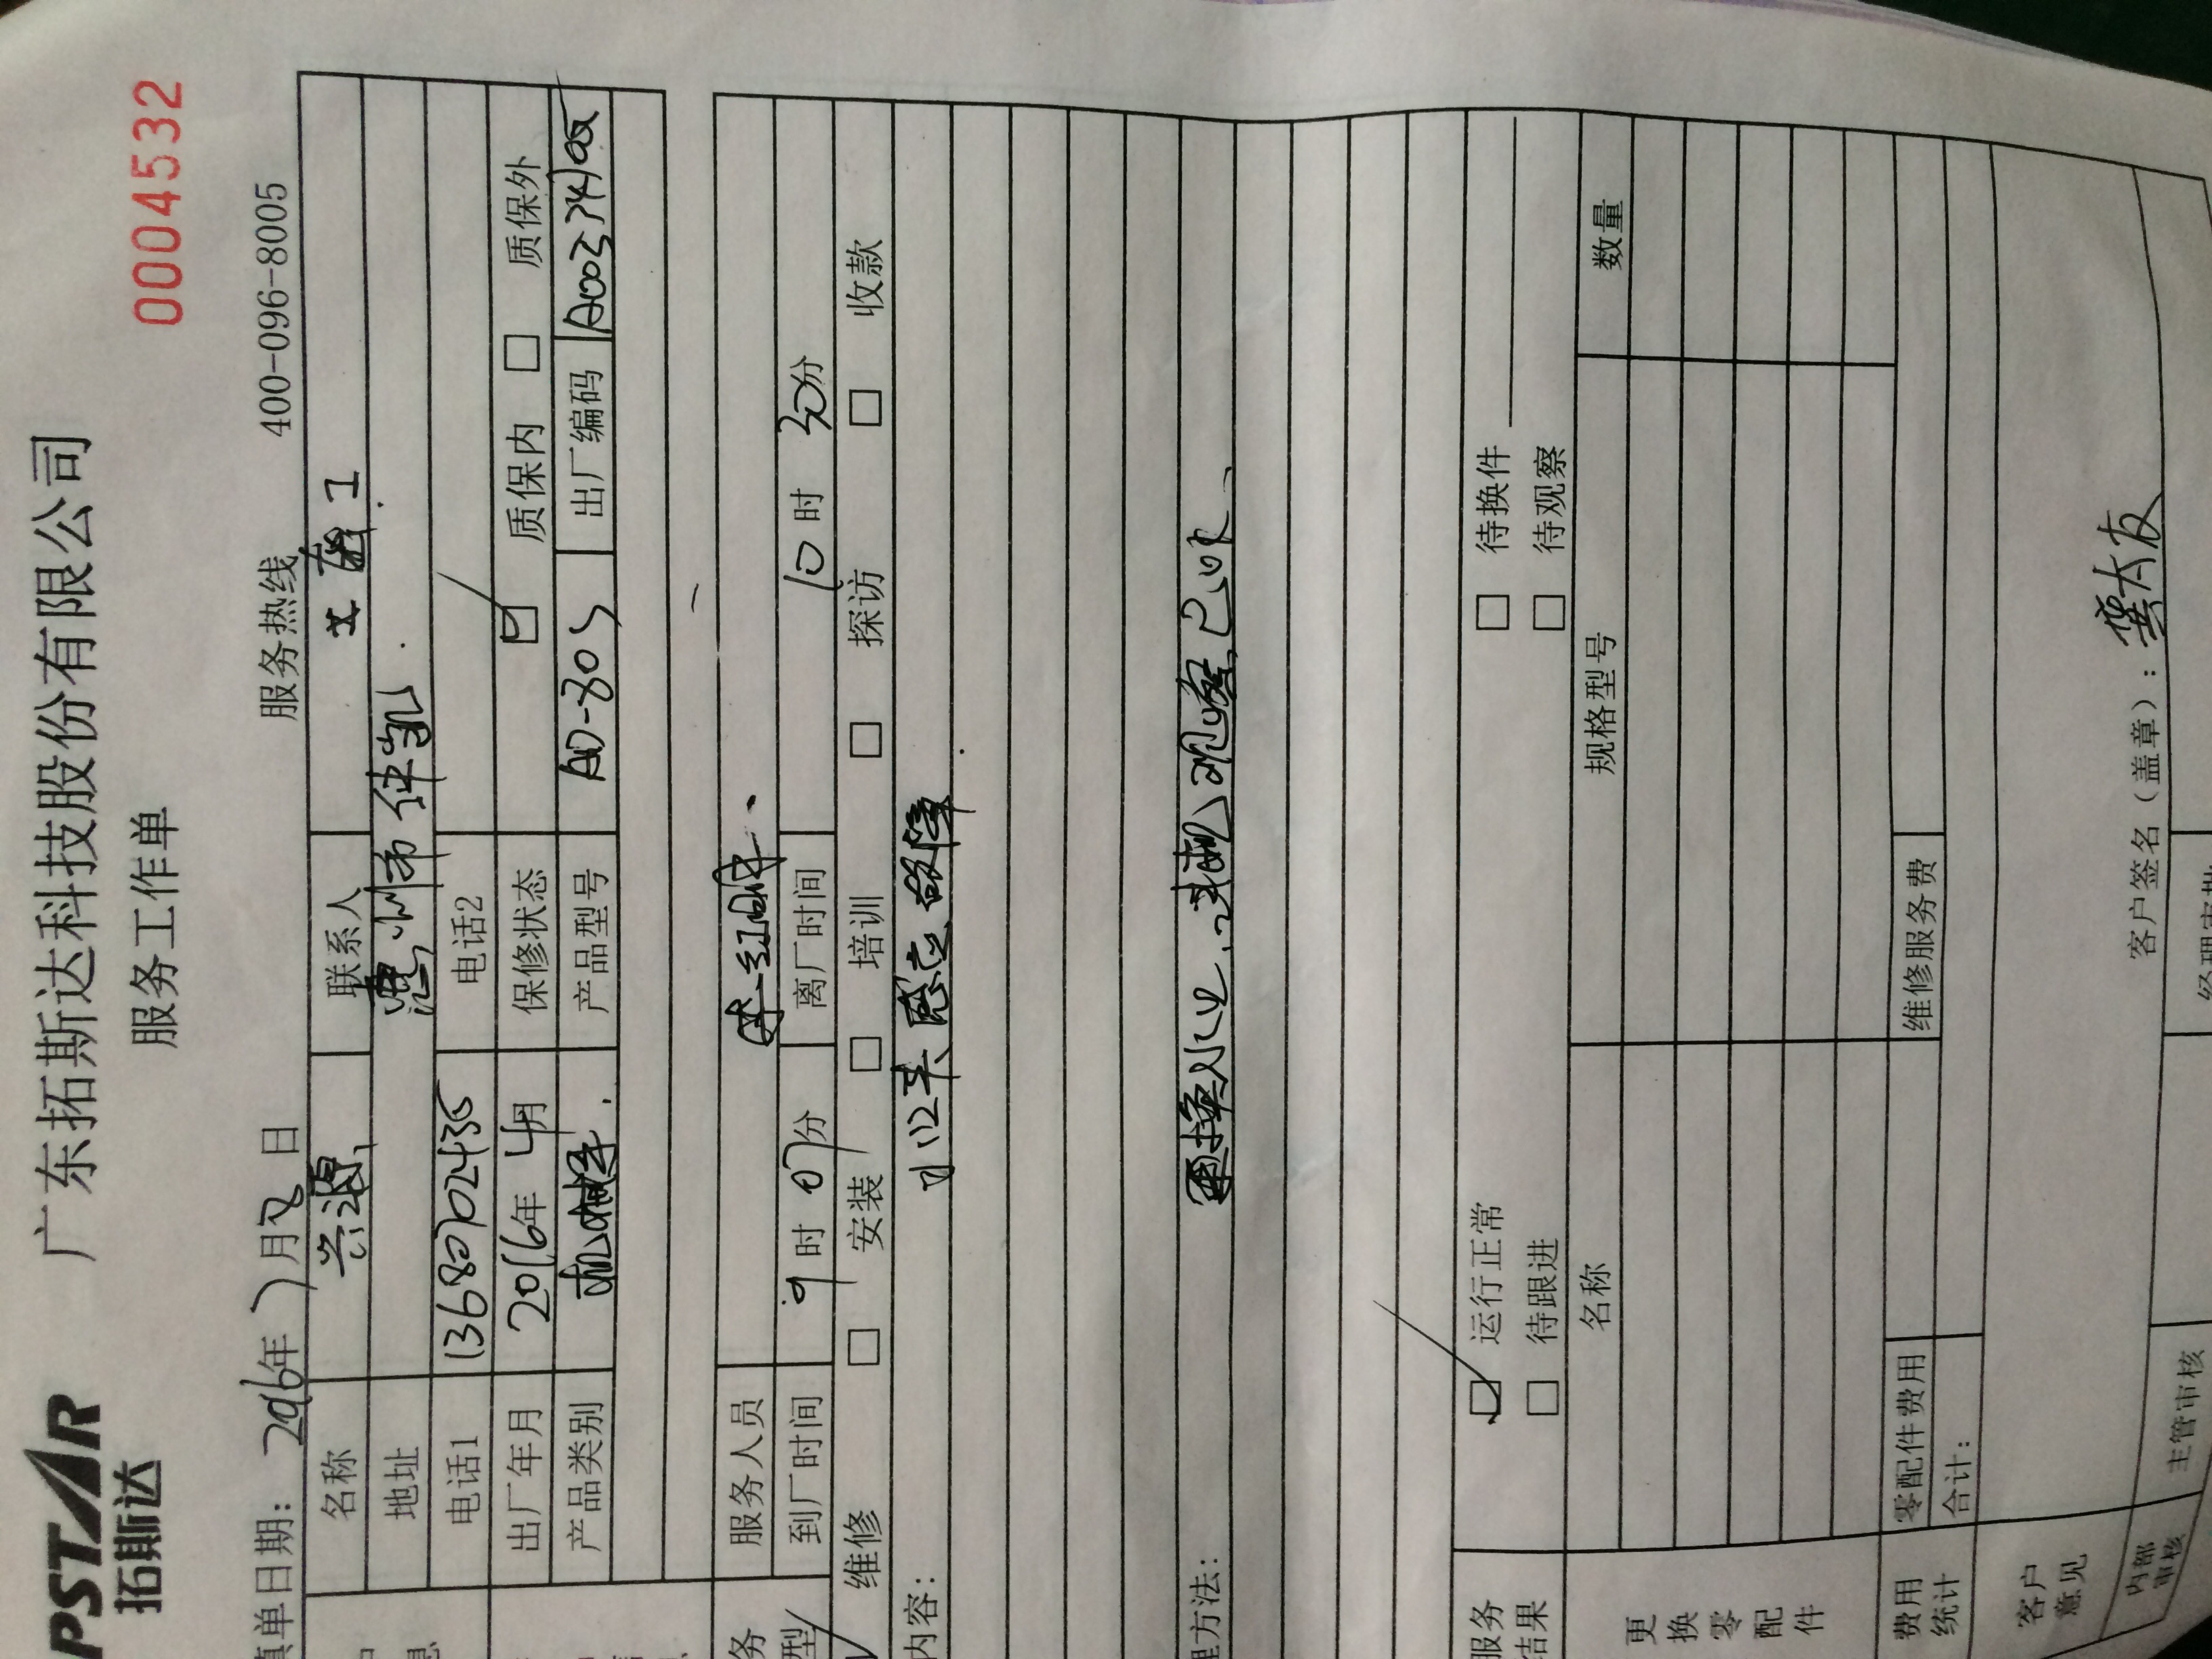 PSTAR 拓斯达
广东拓斯达科技股份有限公司
0004532
服务工作单
填单日期： 2016年7月 日
服务热线 400-096-8005
名称 兴源 联系人
地址 惠州市仲凯
电话1 13680702435 电话2
出厂年月 2016年4月 保修状态 质保内 质保外
产品类别 机械手 产品型号 出厂编码
服务人员
到厂时间 9时07分 离厂时间 10时30分
维修 安装 培训 探访 收款
内容：
感应故障
理方法：
服务结果 运行正常 待换件
待跟进 待观察
更换零配件 名称 规格型号 数量
费用统计 零配件费用 维修服务费
合计：
客户意见
客户签名（盖章）： 龚大友
内部审核 主管审核